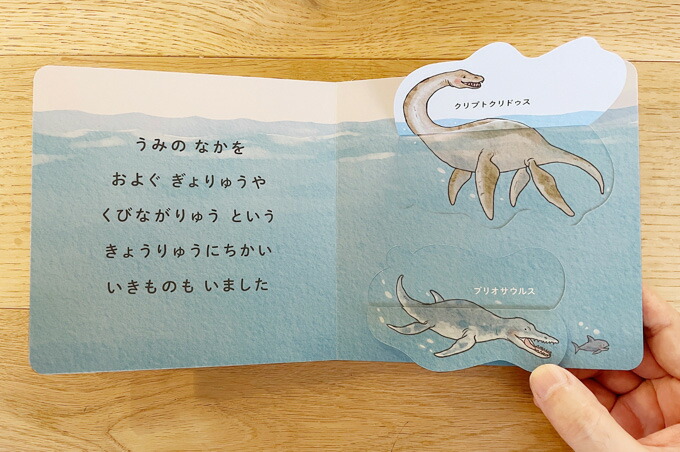 うみの なかを
およぐ ぎょりゅうや
くびながりゅう という
きょうりゅうにちかい
いきものも いました
クリプトクリドゥス
プリオサウルス